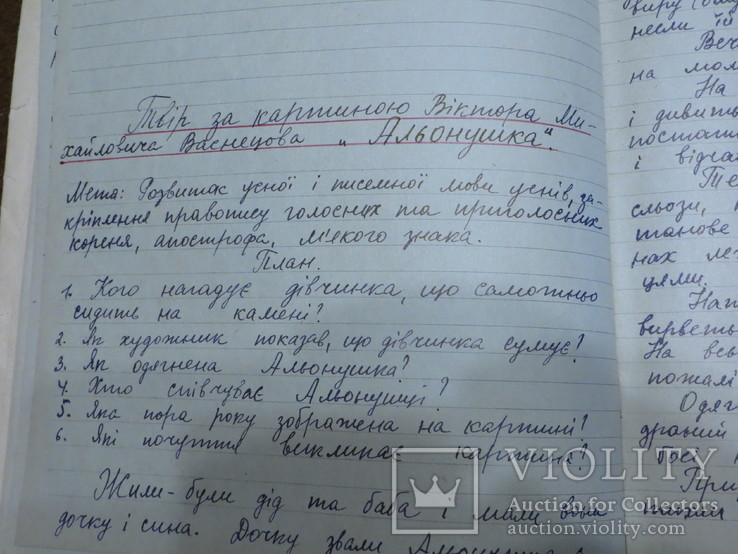 Твір за картиною Віктора Ми-
хайловича Васнецова „Альонушка".
Мета: Розвиток усної і писемної мови учнів, за-
кріплення правопису голосних та приголосних
кореня, апострофа, м'якого знака.
План.
1. Кого нагадує дівчинка, що самотньо
сидить на камені?
2. Як художник показав, що дівчинка сумує?
3. Як одягнена Альонушка?
4. Хто співчуває Альонушці?
5. Яка пора року зображена на картині?
6. Які почуття викликає картина?
Жили-були дід та баба і мали вони
дочку і сина. Дочку звали
несли їй
Веч
на мол
На
і дивить
постат
і відга
Те
сльози,
танове
нах ле
цями.
Нап
вирветь
На всь
пожалі
Одяг
драний
При
VIOLITY
Auction for Collectors
auction.violity.com